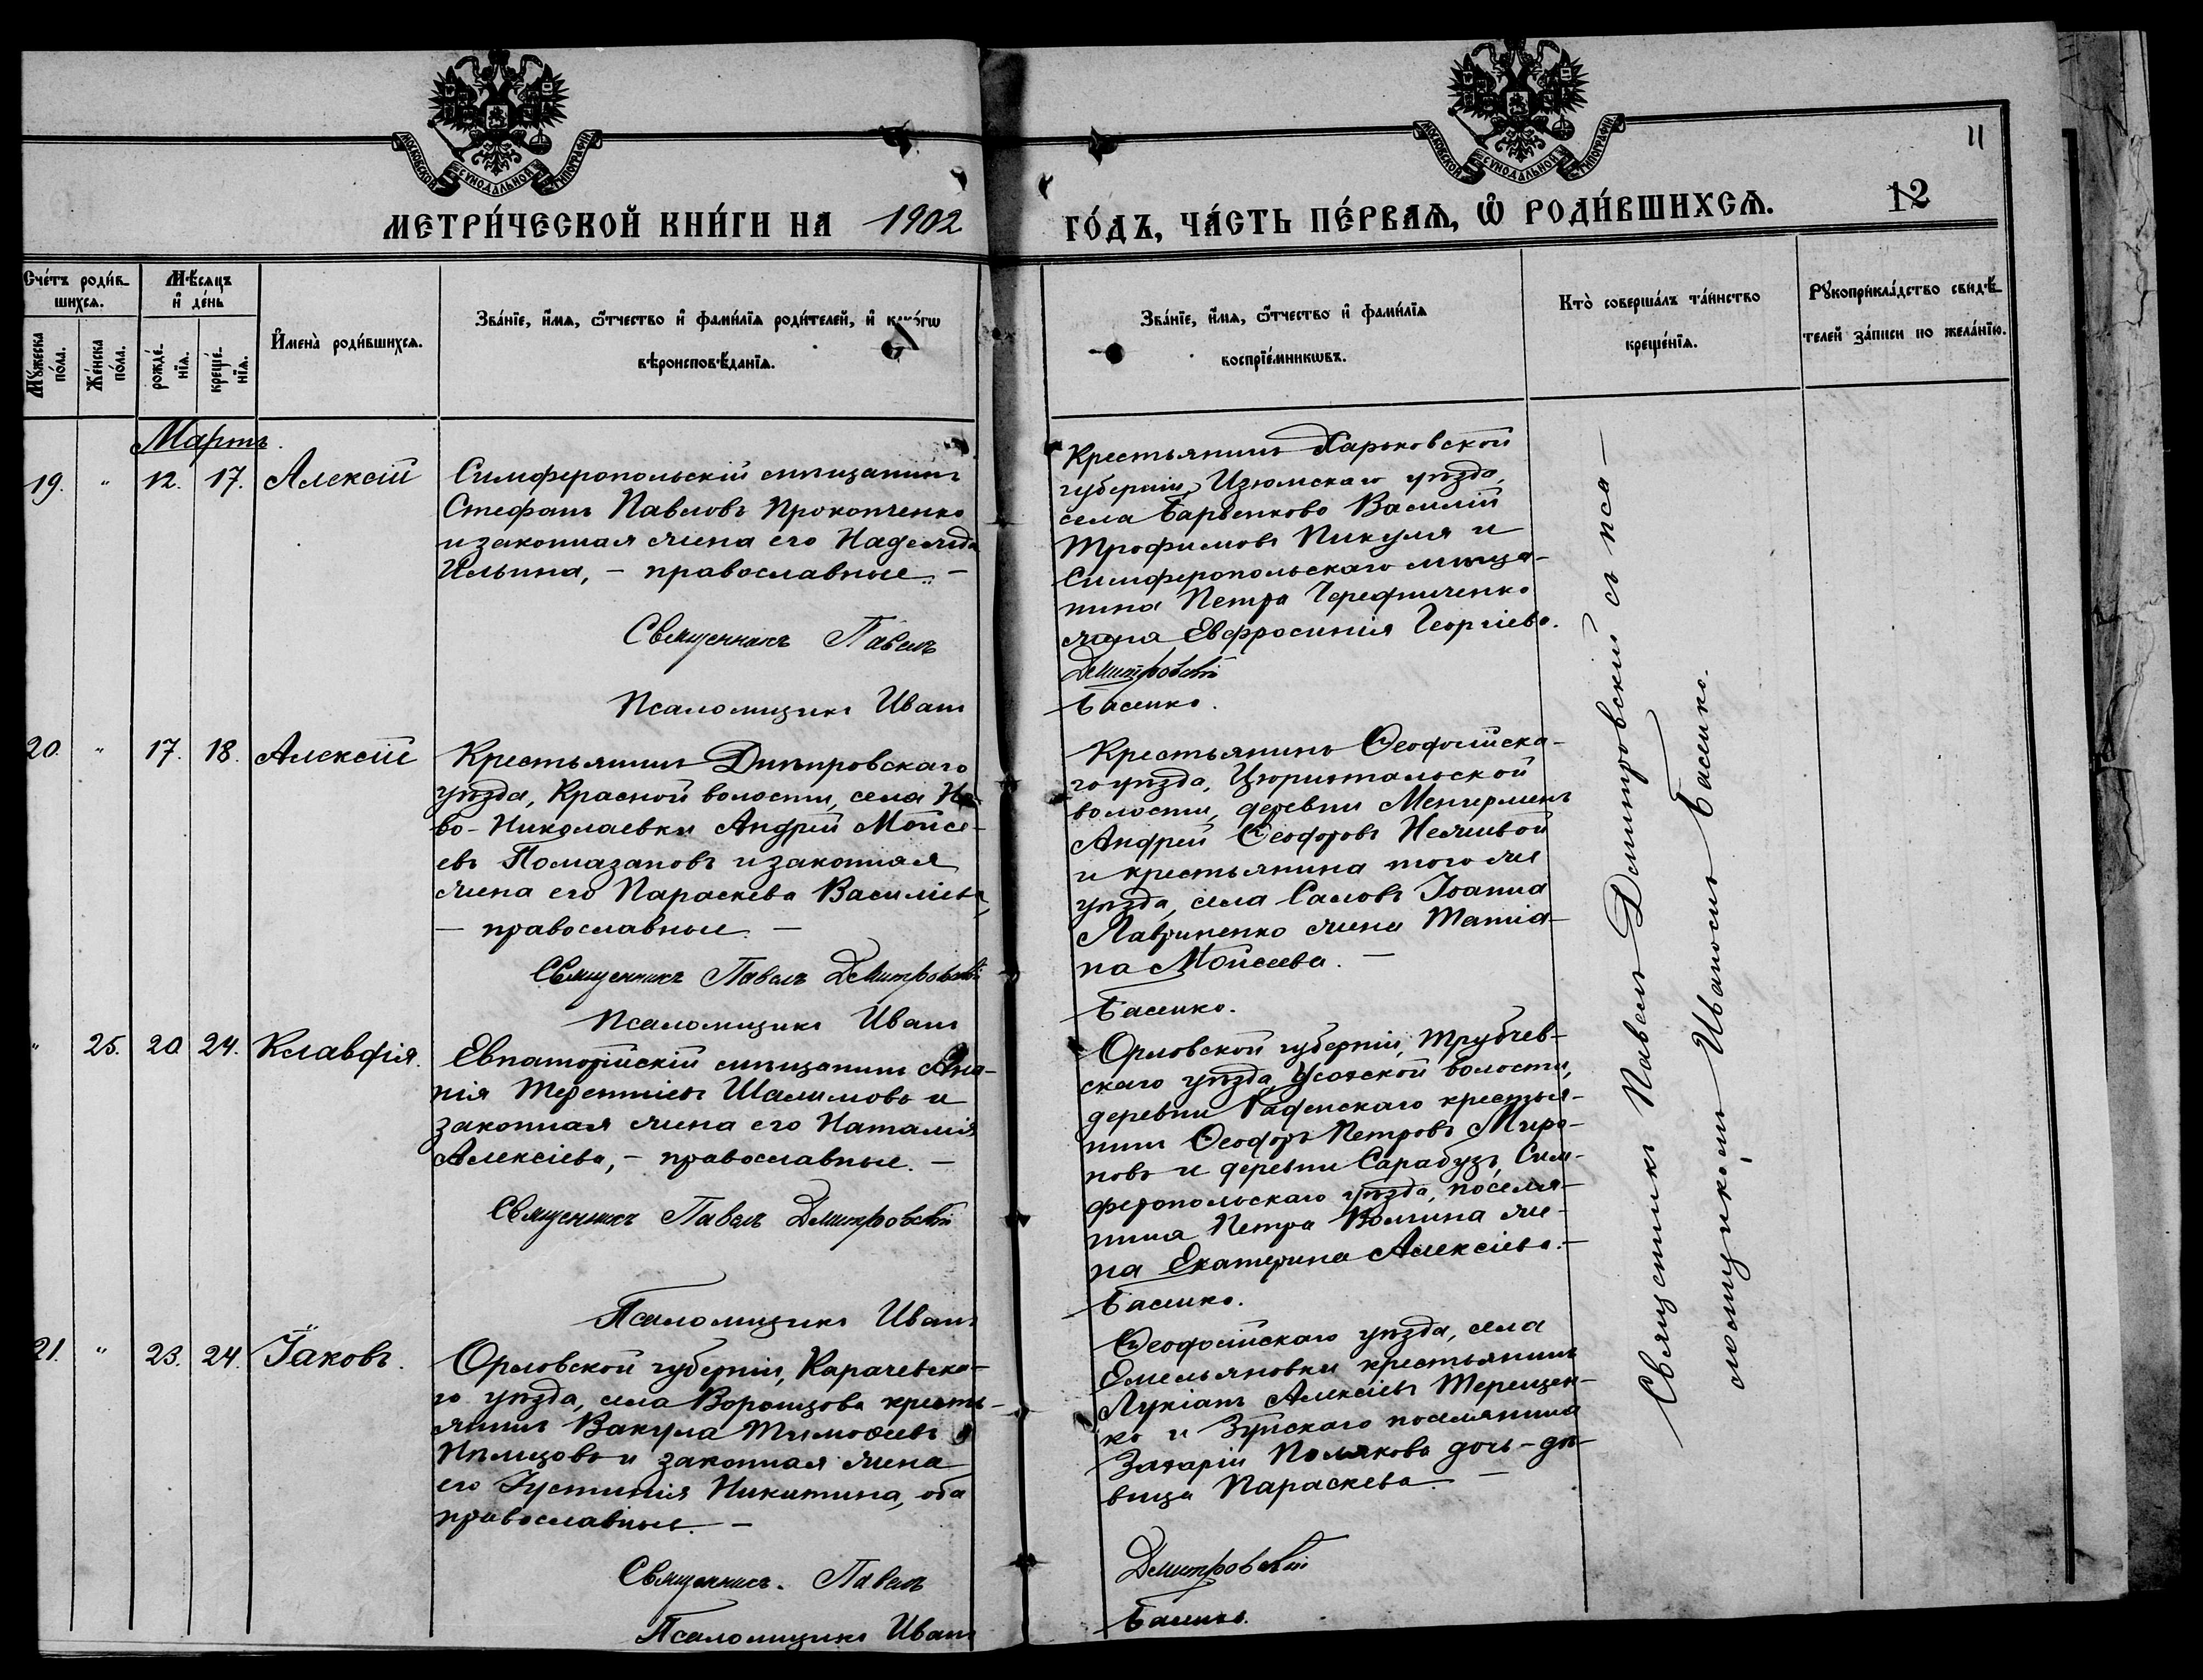 МОСКОВСКОЙ СУНОДАЛЬНОЙ ТИПОГРАФІИ
МОСКОВСКОЙ СУНОДАЛЬНОЙ ТИПОГРАФІИ
11
12
МЕТРИ́ЧЕСКОЙ КНИ́ГИ НА 1902 ГО́ДЪ, ЧА́СТЬ ПЕ́РВАѦ, Ѡ҆ РОДИ́ВШИХСѦ.
Сче́тъ роди́в-
шихсѧ.
Мꙋ́жеска
по́ла.
Же́нска
по́ла.
Мѣ́сѧцъ
и҆ де́нь
рожде́-
нїѧ.
креще́-
нїѧ.
И҆мена̀ роди́вшихсѧ.
Зва́нїе, и҆́мѧ, ѻ҆́тчество и҆ фами́лїѧ роди́телей, и҆ како́гѡ
вѣроисповѣ́данїѧ.
Зва́нїе, и҆́мѧ, ѻ҆́тчество и҆ фами́лїѧ
воспрїе́мникѡвъ.
Кто̀ соверша́лъ та́инство
креще́нїѧ.
Рꙋкоприкла́дство свидѣ́-
телей за́писи по жела́нїю.
Мартъ.
19. " 12. 17. Алексій
Симферопольскій мѣщанинъ
Стефанъ Павловъ Прокопченко
и законная жена его Надежда
Ильина, - православные. -
Священникъ Павелъ
Псаломщикъ Иванъ
Крестьянинъ Харьковской
губерніи, Изюмскаго уѣзда,
села Барвенково Василій
Трофимовъ Пикуля и
Симферопольскаго мѣща-
нина Петра Чередниченко
жена Евфросинія Георгіева.
Димитровскій
Басенко.
20. " 17. 18. Алексій
Крестьянинъ Днѣпровскаго
уѣзда, Красной волости, села Но-
во-Николаевки Андрей Мойсе-
евъ Помазановъ и законная
жена его Параскева Васильева,
- православные. -
Священникъ Павелъ Димитровскій
Псаломщикъ Иванъ
Крестьянинъ Ѳеодосійска-
го уѣзда, Цюрихтальской
волости, деревни Менгермень
Андрей Ѳеодоровъ Неживой
и крестьянина того же
уѣзда, села Саловъ Іоанна
Лавриненко жена Татіа-
на Мойсеева. -
Басенко.
" 25. 20. 24. Клавдія.
Евпаторійскій мѣщанинъ Ана-
нія Терентіевъ Шалимовъ и
законная жена его Наталія
Алексіева, - православные. -
Священникъ Павелъ Димитровскій
Псаломщикъ Иванъ
Орловской губерніи, Трубчев-
скаго уѣзда, Усохской волости,
деревни крестья-
нинъ Ѳеодоръ Петровъ Миро-
новъ и деревни Сарабузъ, Сим-
феропольскаго уѣзда, поселя-
нина Петра Волгина же-
на Екатерина Алексіева. -
Басенко.
21. " 23. 24. Іаковъ.
Орловской губерніи, Карачевска-
го уѣзда, села Воронцова кресть-
янинъ Вакула Тимоѳеевъ
Нѣмцовъ и законная жена
его Іустинія Никитина, оба
православные. -
Священникъ. Павелъ
Псаломщикъ Иванъ
Ѳеодосійскаго уѣзда, села
Емельяновки крестьянинъ
Лукіанъ Алексіевъ Терещен-
ко и Зуйскаго поселянина
Захарія Полякова дочь-дѣ-
вица Параскева. -
Димитровскій
Басенко.
Священникъ Павелъ Димитровскій съ пса-
ломщикомъ Иваномъ Басенко.